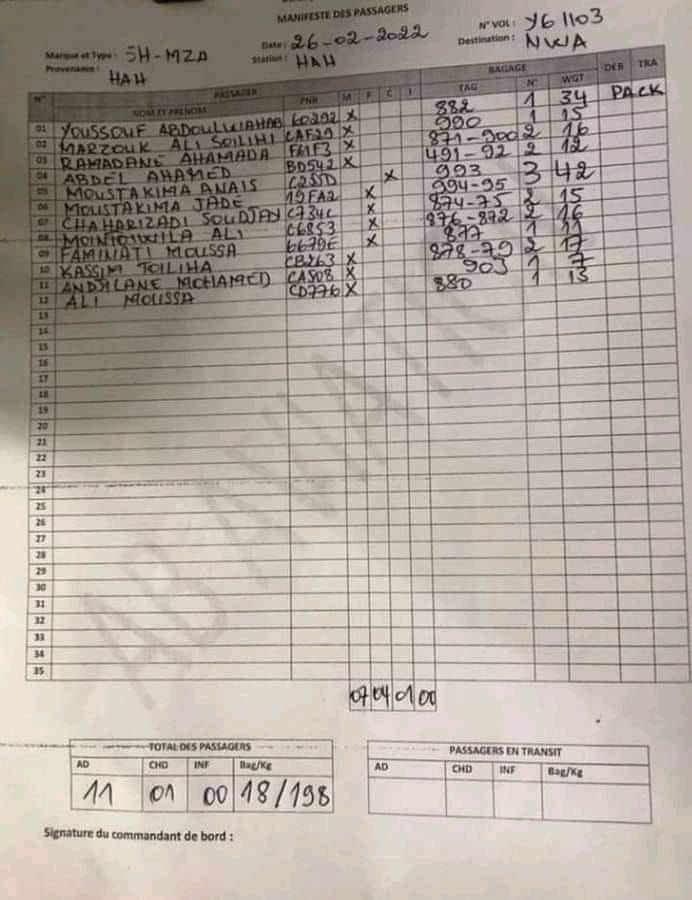 MANIFESTE DES PASSAGERS
Marque et Type : 5H-MZA Date : 26-02-2022 N° VOL : Y61103
Provenance : HAH Station : HAH Destination : NWA
PASSAGER BAGAGE
N° NOM ET PRENOM PNR M F C I TAG N° WGT DEB TRA
01 YOUSSOUF ABDOULWAHAB 60292 X 882 1 34 PACK
02 MARZOUK ALI SOILIHI CAF29 X 990 1 15
03 RAMADANE AHAMADA X 871-900 2 16
04 ABDEL AHAMED BD542 X 491-92 2 12
05 MOUSTAKIMA ANAIS C255D X 993 3 42
06 MOUSTAKIMA JADE 19FA2 X 994-95
07 CHAHARIZADI SOUDJAY C734C X 874-75 2 15
08 ALI C6853 X 876-872 2 16
09 FAMINATI MOUSSA 6679E X 877 1 11
10 KASSIM TOILIHA CB263 X 878-79 2 17
11 MOHAMED CA508 X 903 1 7
12 ALI MOUSSA CD776 X 880 1 13
13
14
15
16
17
18
19
20
21
22
23
24
25
26
27
28
29
30
31
32
33
34
35
07 04 01 00
AB AVIATION
TOTAL DES PASSAGERS
AD CHD INF Bag/Kg
11 01 00 18/198
PASSAGERS EN TRANSIT
AD CHD INF Bag/Kg
Signature du commandant de bord :